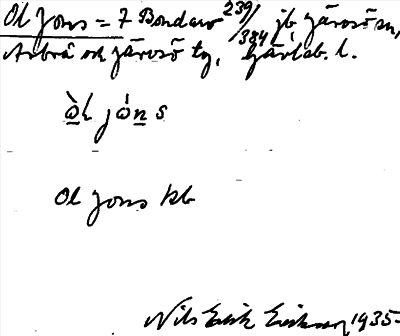 Ol Jons = 7 Bondarv 239/384 jb, Järvsö sn,
Arbrå och Järvsö tg, Gävleb. l.
ò̲l jón̲s
Ol Jons kb
Nils Erik Eriksson 1935